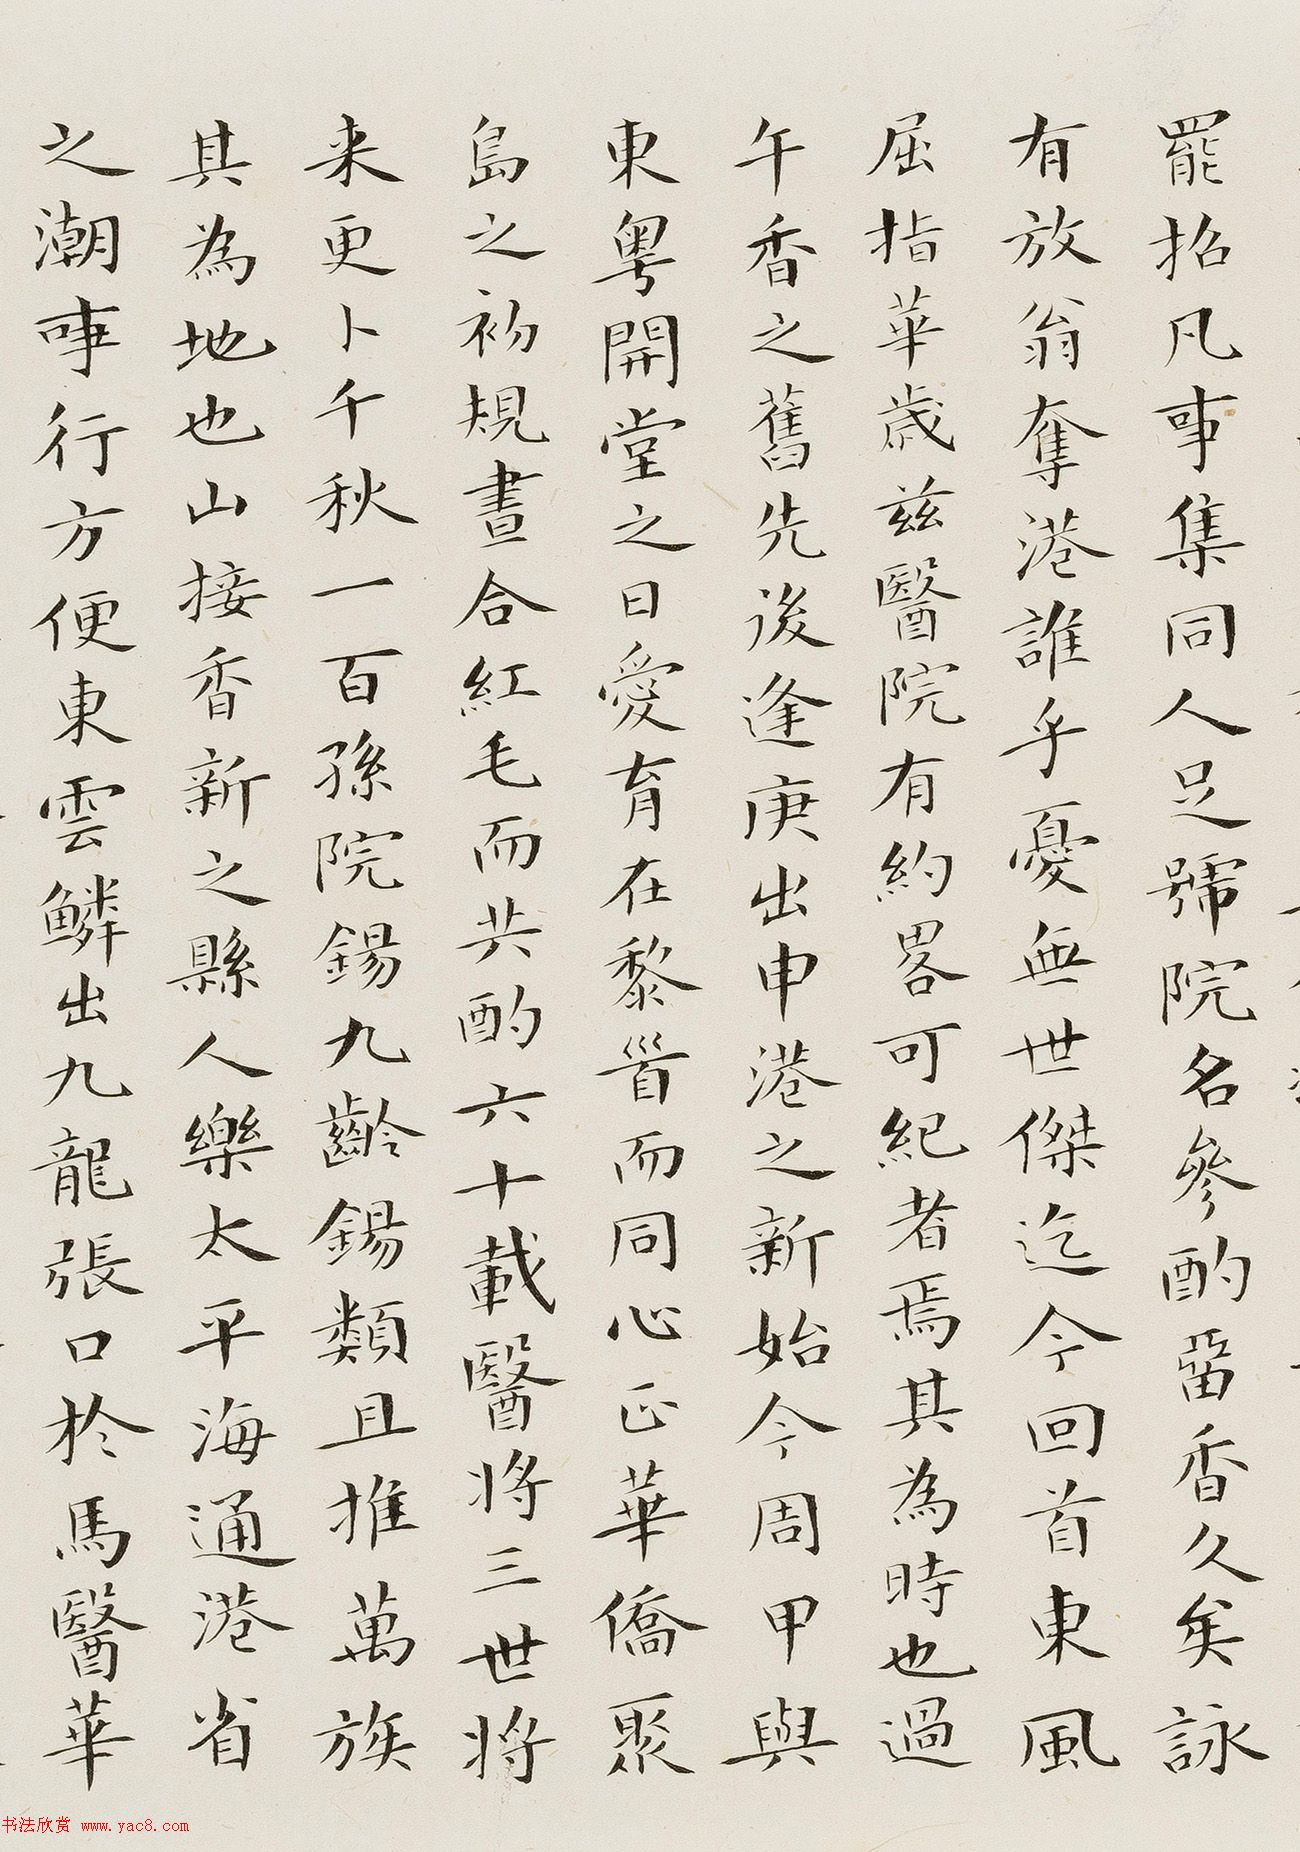 罷招凡事集同人足號院名參酌畱香久矣詠
有放翁奪港誰乎憂無世傑迄今回首東風
屈指華歲茲醫院有約畧可紀者焉其為時也過
午香之舊先後逢庚出申港之新始今周甲與
東粵開堂之日愛育在黎首而同心正華僑聚
島之初規晝合紅毛而共酌六十載醫將三世將
来更卜千秋一百孫院錫九齡錫類且推萬族
其為地也山接香新之縣人樂太平海通港省
之潮事行方便東雲鱗出九龍張口於馬醫華
书法欣赏 www.yac8.com